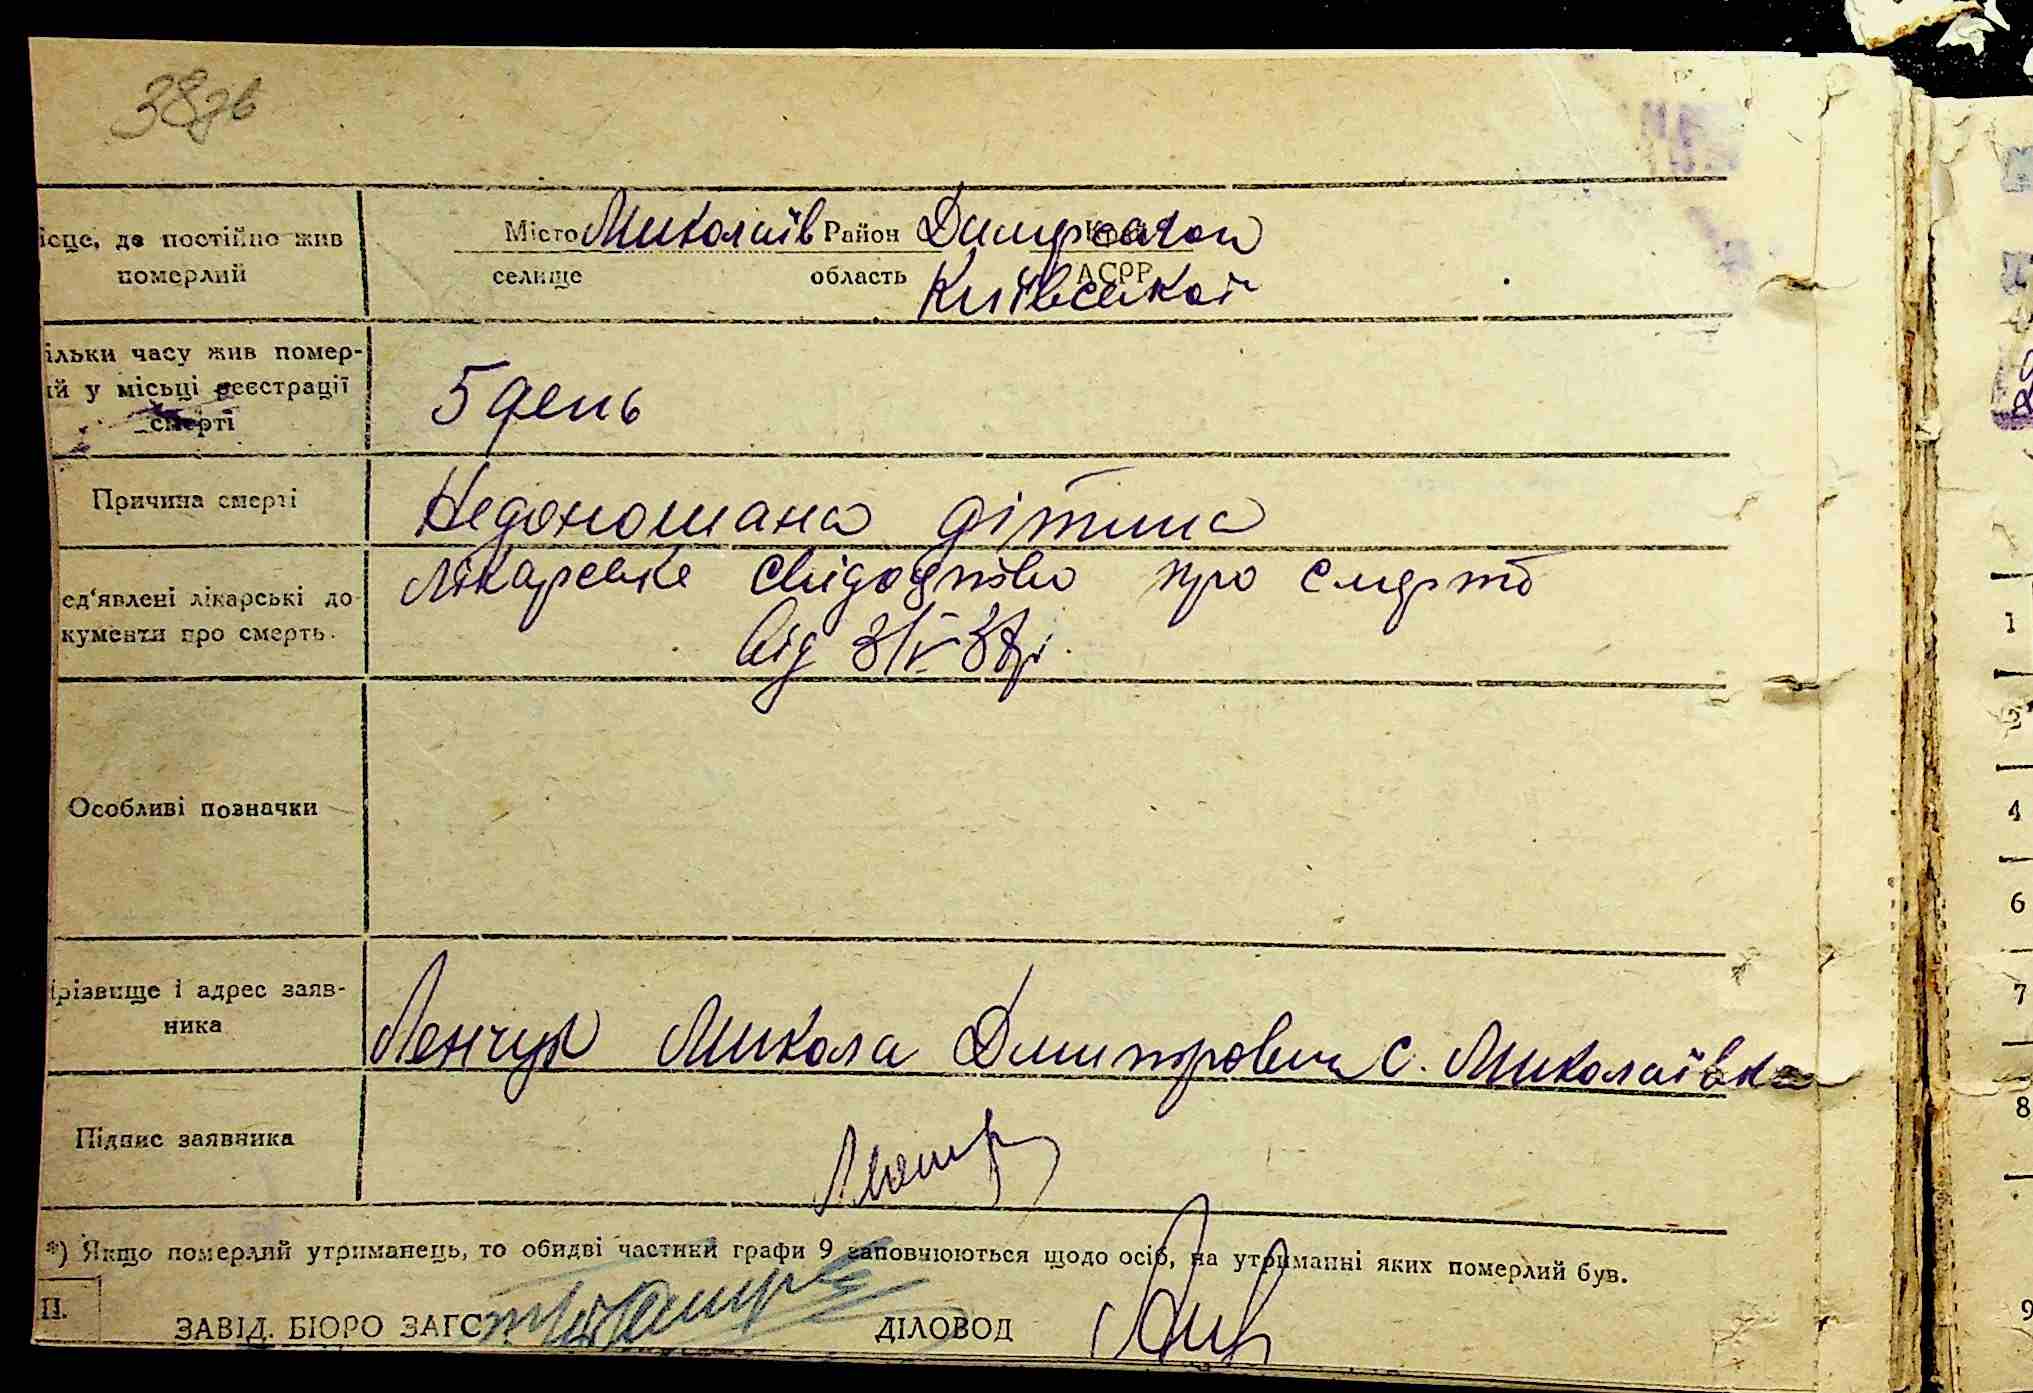 38зв
ісце, де постійно жив
померлий
Місто Миколаїв Район Димерсокои Край
селище область Київської АСРР
ільки часу жив помер-
ий у місьці реєстрації
смерті
5 день
Причина смерті
Недоношана дітина
ед'явлені лікарські до
кументи про смерть.
Лікарське свідодство про смерть
від 3/V 38р.
Особливі позначки
різвище і адрес заяв-
ника
Ленчук Микола Дмитрович с. Миколаївка
Підпис заявника
*) Якщо померлий утриманець, то обидві частини графи 9 заповнюються щодо осіб, на утриманні яких померлий був.
П.
ЗАВІД. БЮРО ЗАГС
ДІЛОВОД
1
4
6
7
8
9